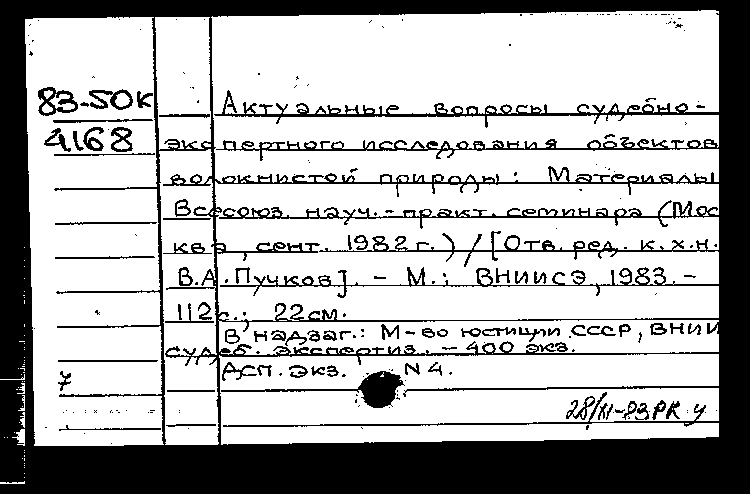 83-50К Актуальные вопросы судебно-
4168 экспертного исследования объектов
волокнистой природы: Материалы
Всесоюз. науч.-практ. семинара (Мос
ква, сент. 1982 г.) / [Отв. ред. к.х.н.
В.А. Пучков]. - М.: ВНИИСЭ, 1983. -
112 с.; 22 см.
В надзаг.: М-во юстиции СССР, ВНИИ
судеб. экспертиз. - 400 экз.
7 ДСП. экз. N 4.
28/XI-83 РК у